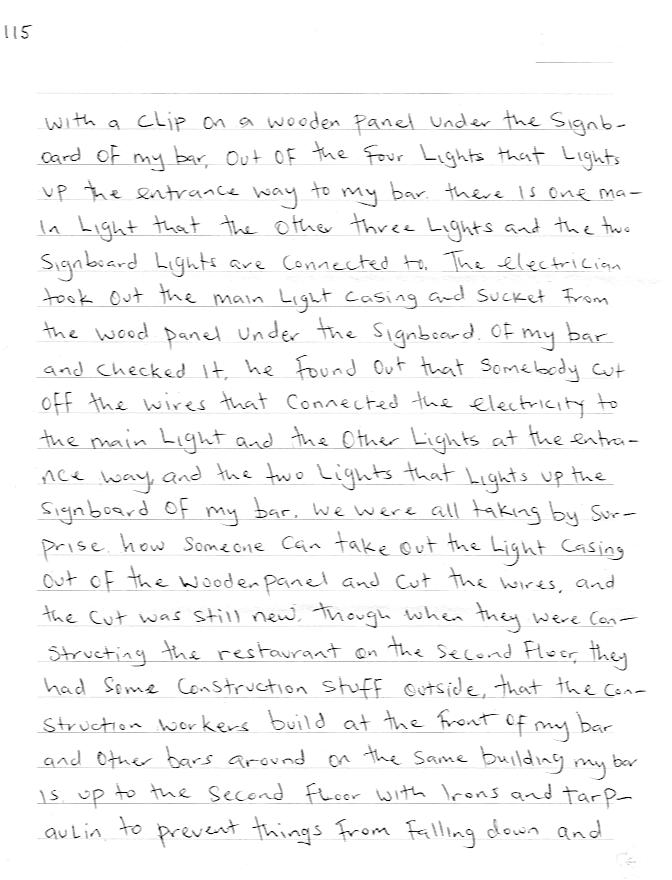 115
with a clip on a wooden panel under the Signb-
oard of my bar, Out of the four Lights that Lights
up the entrance way to my bar. there is one ma-
in Light that the Other three Lights and the two
Signboard Lights are Connected to. The electrician
took Out the main Light casing and Sucket From
the wood panel under the Signboard. Of my bar
and checked It, he found Out that Somebody cut
off the wires that Connected the electricity to
the main Light and the Other Lights at the entra-
nce way, and the two Lights that Lights up the
Signboard Of my bar. we were all taking by Sur-
prise. how Someone Can take Out the Light Casing
Out of the wooden panel and Cut the wires, and
the cut was still new. though when they were Con-
structing the restaurant on the Second Floor, they
had Some Construction Stuff Outside, that the Con-
struction workers build at the front of my bar
and Other bars around on the Same building my bar
is up to the Second Floor with Irons and tarp-
aulin to prevent things From Falling down and